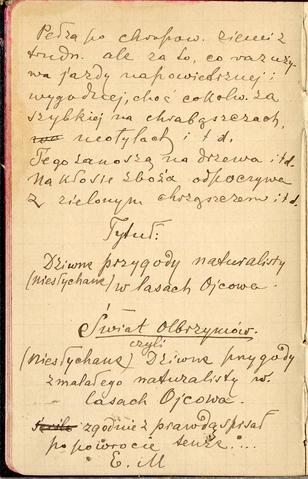 Pełza po chropow. ziemi z
trudn. ale za to, co za uży
wa jazdy napowietrznej i
wygodnej, choć cokolw. za
szybkiej na chrabąszczach,
motylach i t d.
Tego zanoszą na drzewa i td.
Na kłosie zboża odpoczywa
z zielonym chrząszczem i td.
Tytuł:
Dziwne przygody naturalisty
(niesłychane) w lasach Ojcowa.
Świat Olbrzymów.
czyli
(Niesłychane) Dziwne przygody
zmalałego naturalisty w.
lasach Ojcowa.
zgodnie z prawdą spisał
po powrocie tenże....
E. M